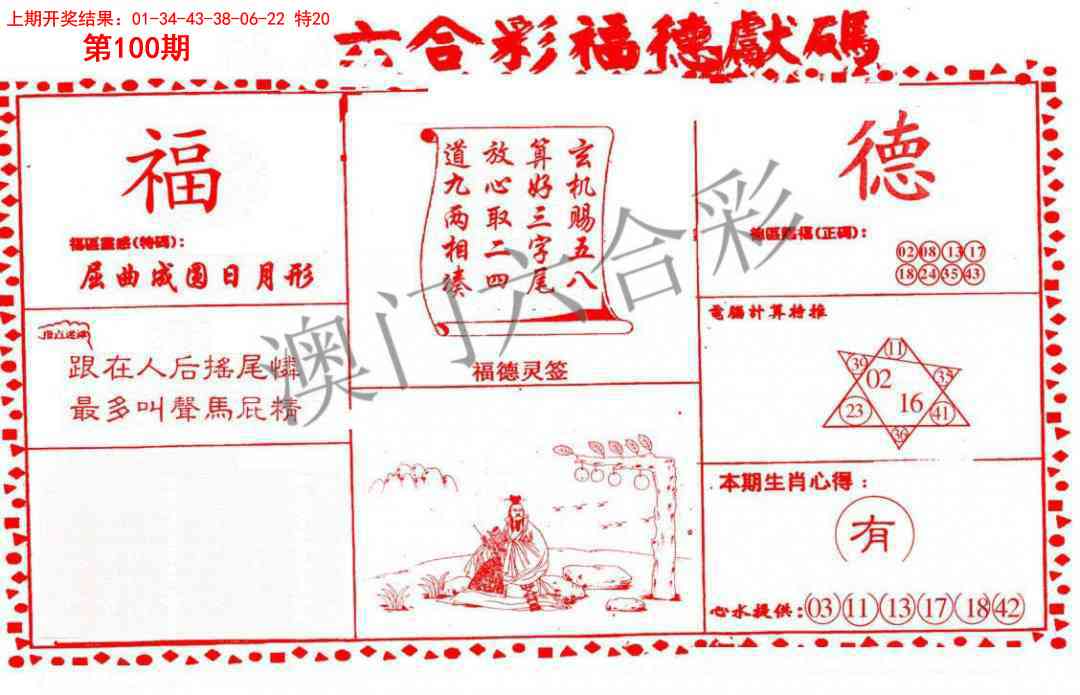 上期开奖结果：01-34-43-38-06-22 特20
第100期
六合彩福德獻碼
福
福區靈感(特碼)：
屈曲成圆日月形
跟在人后摇尾憐
最多叫聲馬屁精
玄机赐五八
算好三字尾
放心取二四
道九两相凑
福德灵签
德
(正碼)：
02 08 13 17
18 24 35 43
電腦計算特推
11
39 02 35
23 16 41
36
本期生肖心得：
有
心水提供：03 11 13 17 18 42
澳门六合彩